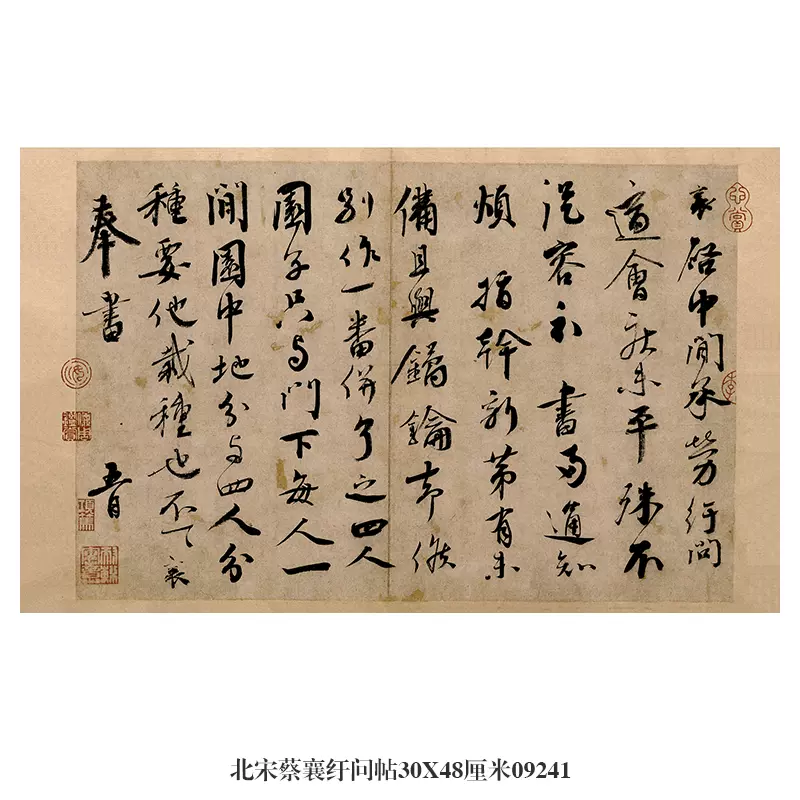 襄啓中間承勞紆問
適會疾未平殊不
從容示書可通知
煩指幹新第有未
備且與鐍鑰却俟
別作一番併了之四人
園子只与門下每人一
間園中地分与四人分
種要他栽種也不一一襄
奉書 五日
北宋蔡襄纡问帖30X48厘米09241